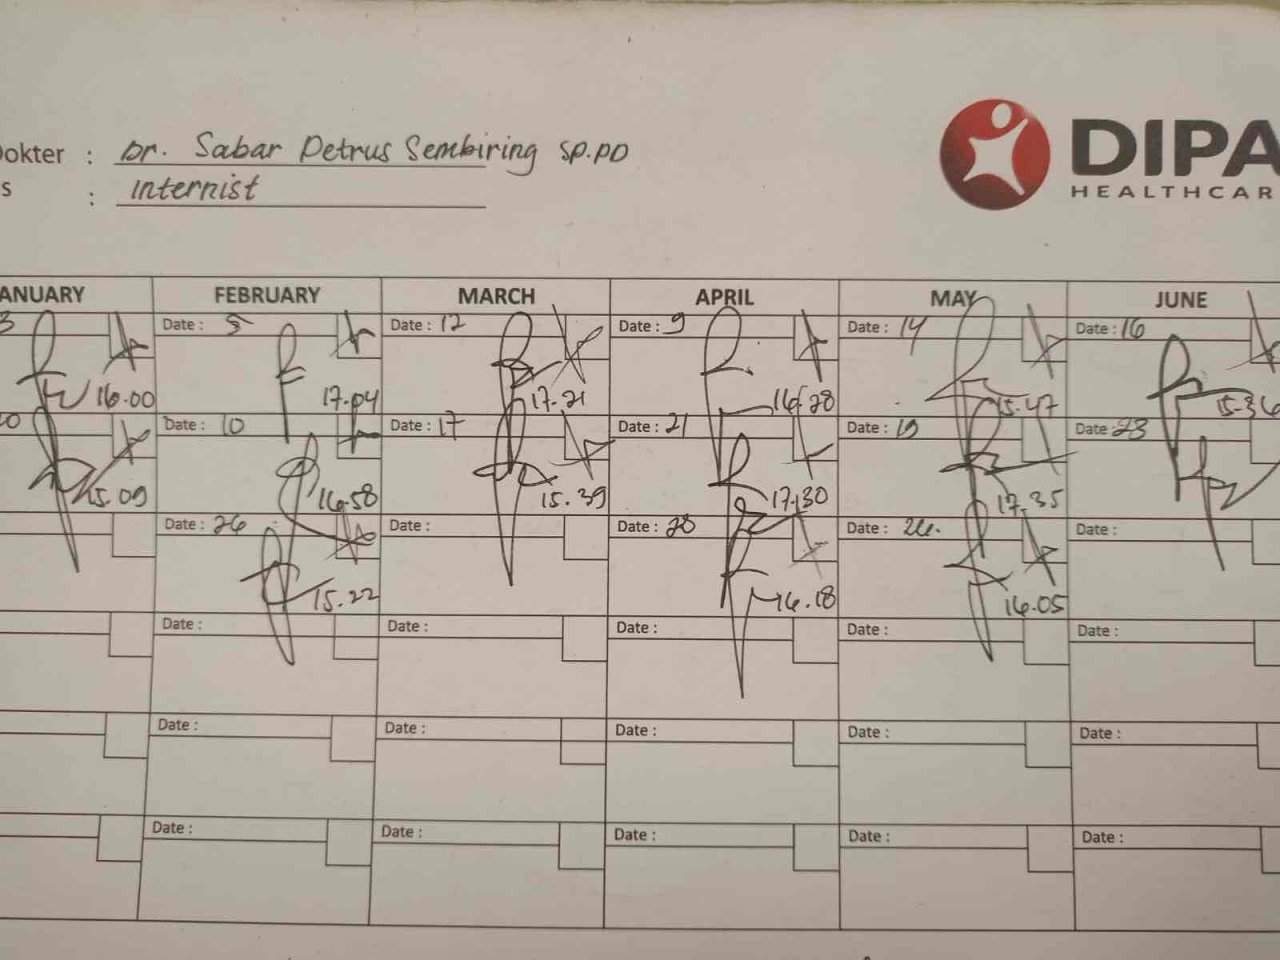 Dokter : Dr. Sabar Petrus Sembiring SP.PD
s : Internist
DIPA
HEALTHCAR
ANUARY FEBRUARY MARCH APRIL MAY JUNE
3 Date : 5 Date : 12 Date : 9 Date : 14 Date : 16
16.00 17.04 17.21 16.28 15.47 15.36
Date : 10 Date : 17 Date : 21 Date : 19 Date : 23
15.09 16.58 15.39 17.30 17.35
Date : 26 Date : Date : 28 Date : Date :
15.22 16.18 16.05
Date : Date : Date : Date : Date :
Date : Date : Date : Date : Date :
Date : Date : Date : Date : Date :